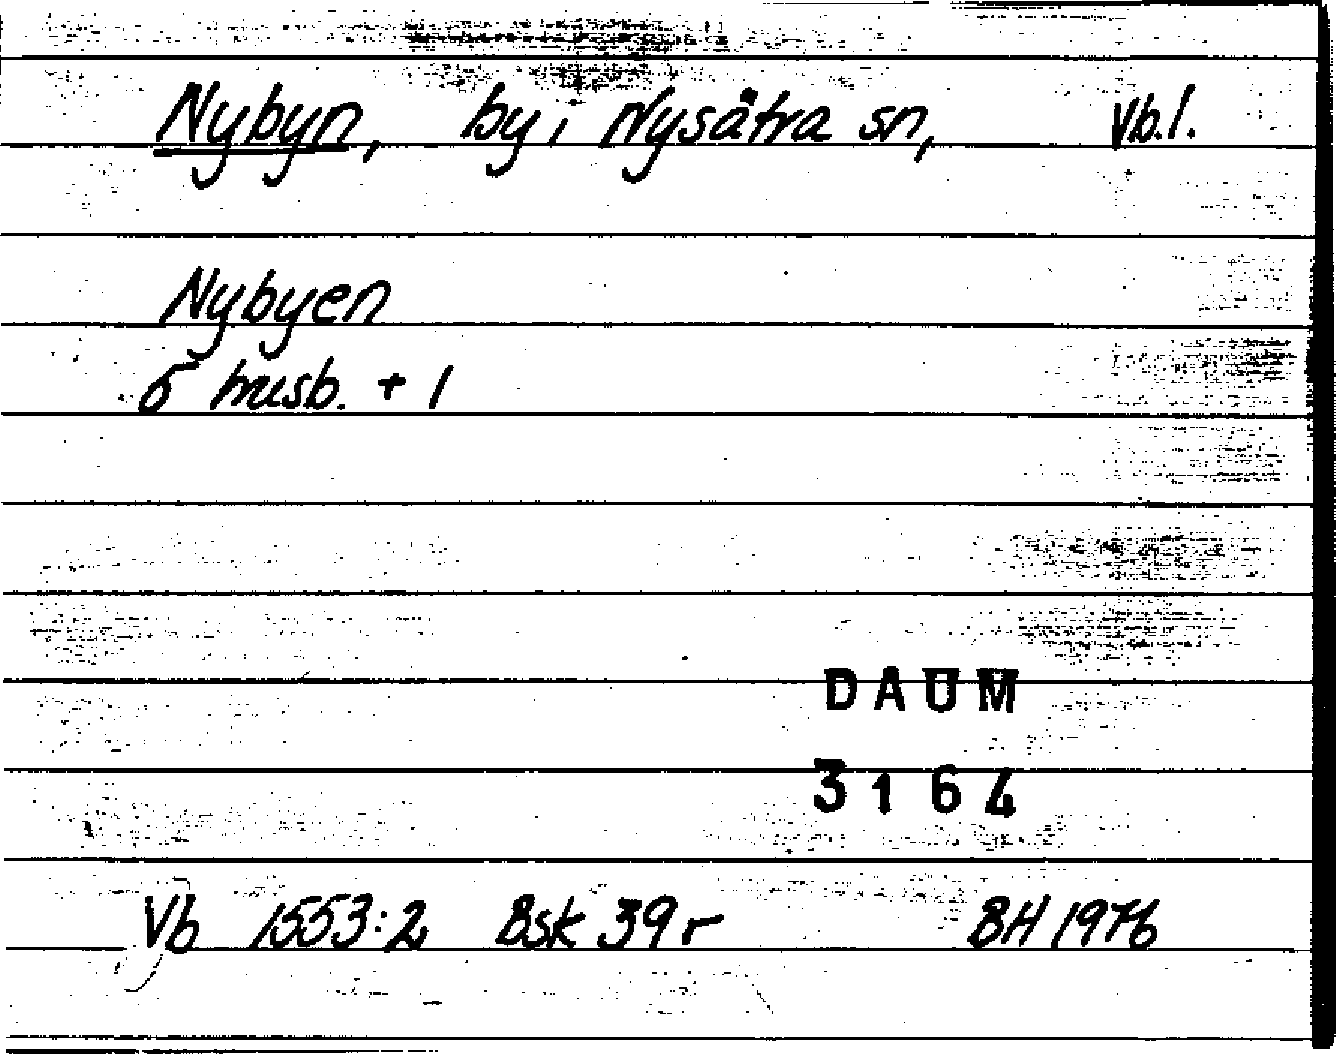 Nybyn, by i Nysätra sn, Vb.l.
Nybyen
5 husb. + 1
DAUM
3164
Vb 1553:2 Bsk 39 r BH 1976